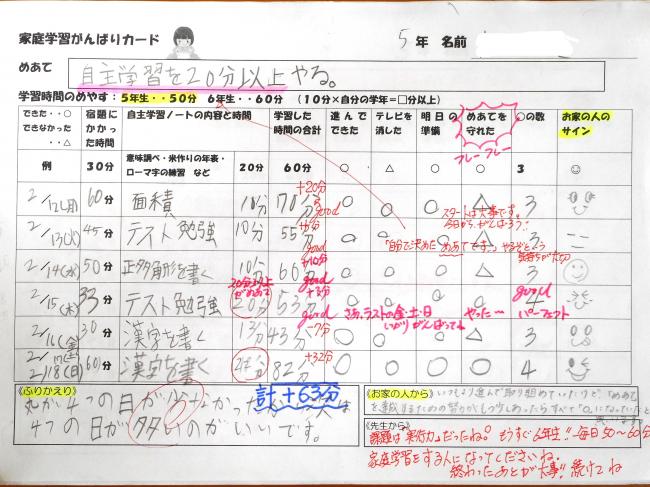 家庭学習がんばりカード
5年 名前
めあて 自主学習を20分以上やる。
学習時間のめやす：5年生・・50分 6年生・・60分 （10分×自分の学年＝□分以上）
できた・・○ できなかった・・△ 宿題にかかった時間 自主学習ノートの内容と時間 学習した時間の合計 進んでできた テレビを消した 明日の準備 めあてを守れた ○の数 お家の人のサイン
フレー フレー
例 30分 意味調べ・米作りの年表・ローマ字の練習 など 20分 60分 ○ ○ △ ○ 3
2/12(月) 60分 面積 10分 70分 +20分 good ○ ○ ○ △ 3
スタートは大事です。
今日から、がんばろう！
2/13(火) 45分 テスト勉強 10分 55分 +5分 good ○ ○ ○ △ 3
2/14(水) 50分 正多角形を書く 10分 60分 +10分 good ○ ○ ○ △ 3
20分以上がめあて
2/15(木) 33分 テスト勉強 20分 53分 +3分 good ○ ○ ○ ○ 4 good
さあ、ラストの金・土・日 やった… パーフェクト
2/16(金) 30分 漢字を書く 13分 43分 -7分 ○ ○ ○ △ 3
2/18(日) 60分 漢字を書く 22分 82分 +32分 ○ ○ ○ ○ 4
計+63分
《ふりかえり》
丸が4つの日が少なかった
4つの日が多いのがいいです。
《お家の人から》いつもより進んで取り組めていたけど、「めあて」
《先生から》
課題は「実行力」だったね。もうすぐ6年生!!毎日50〜60分
家庭学習をする人になってくださいね。
終わったあとが大事!!続けてね